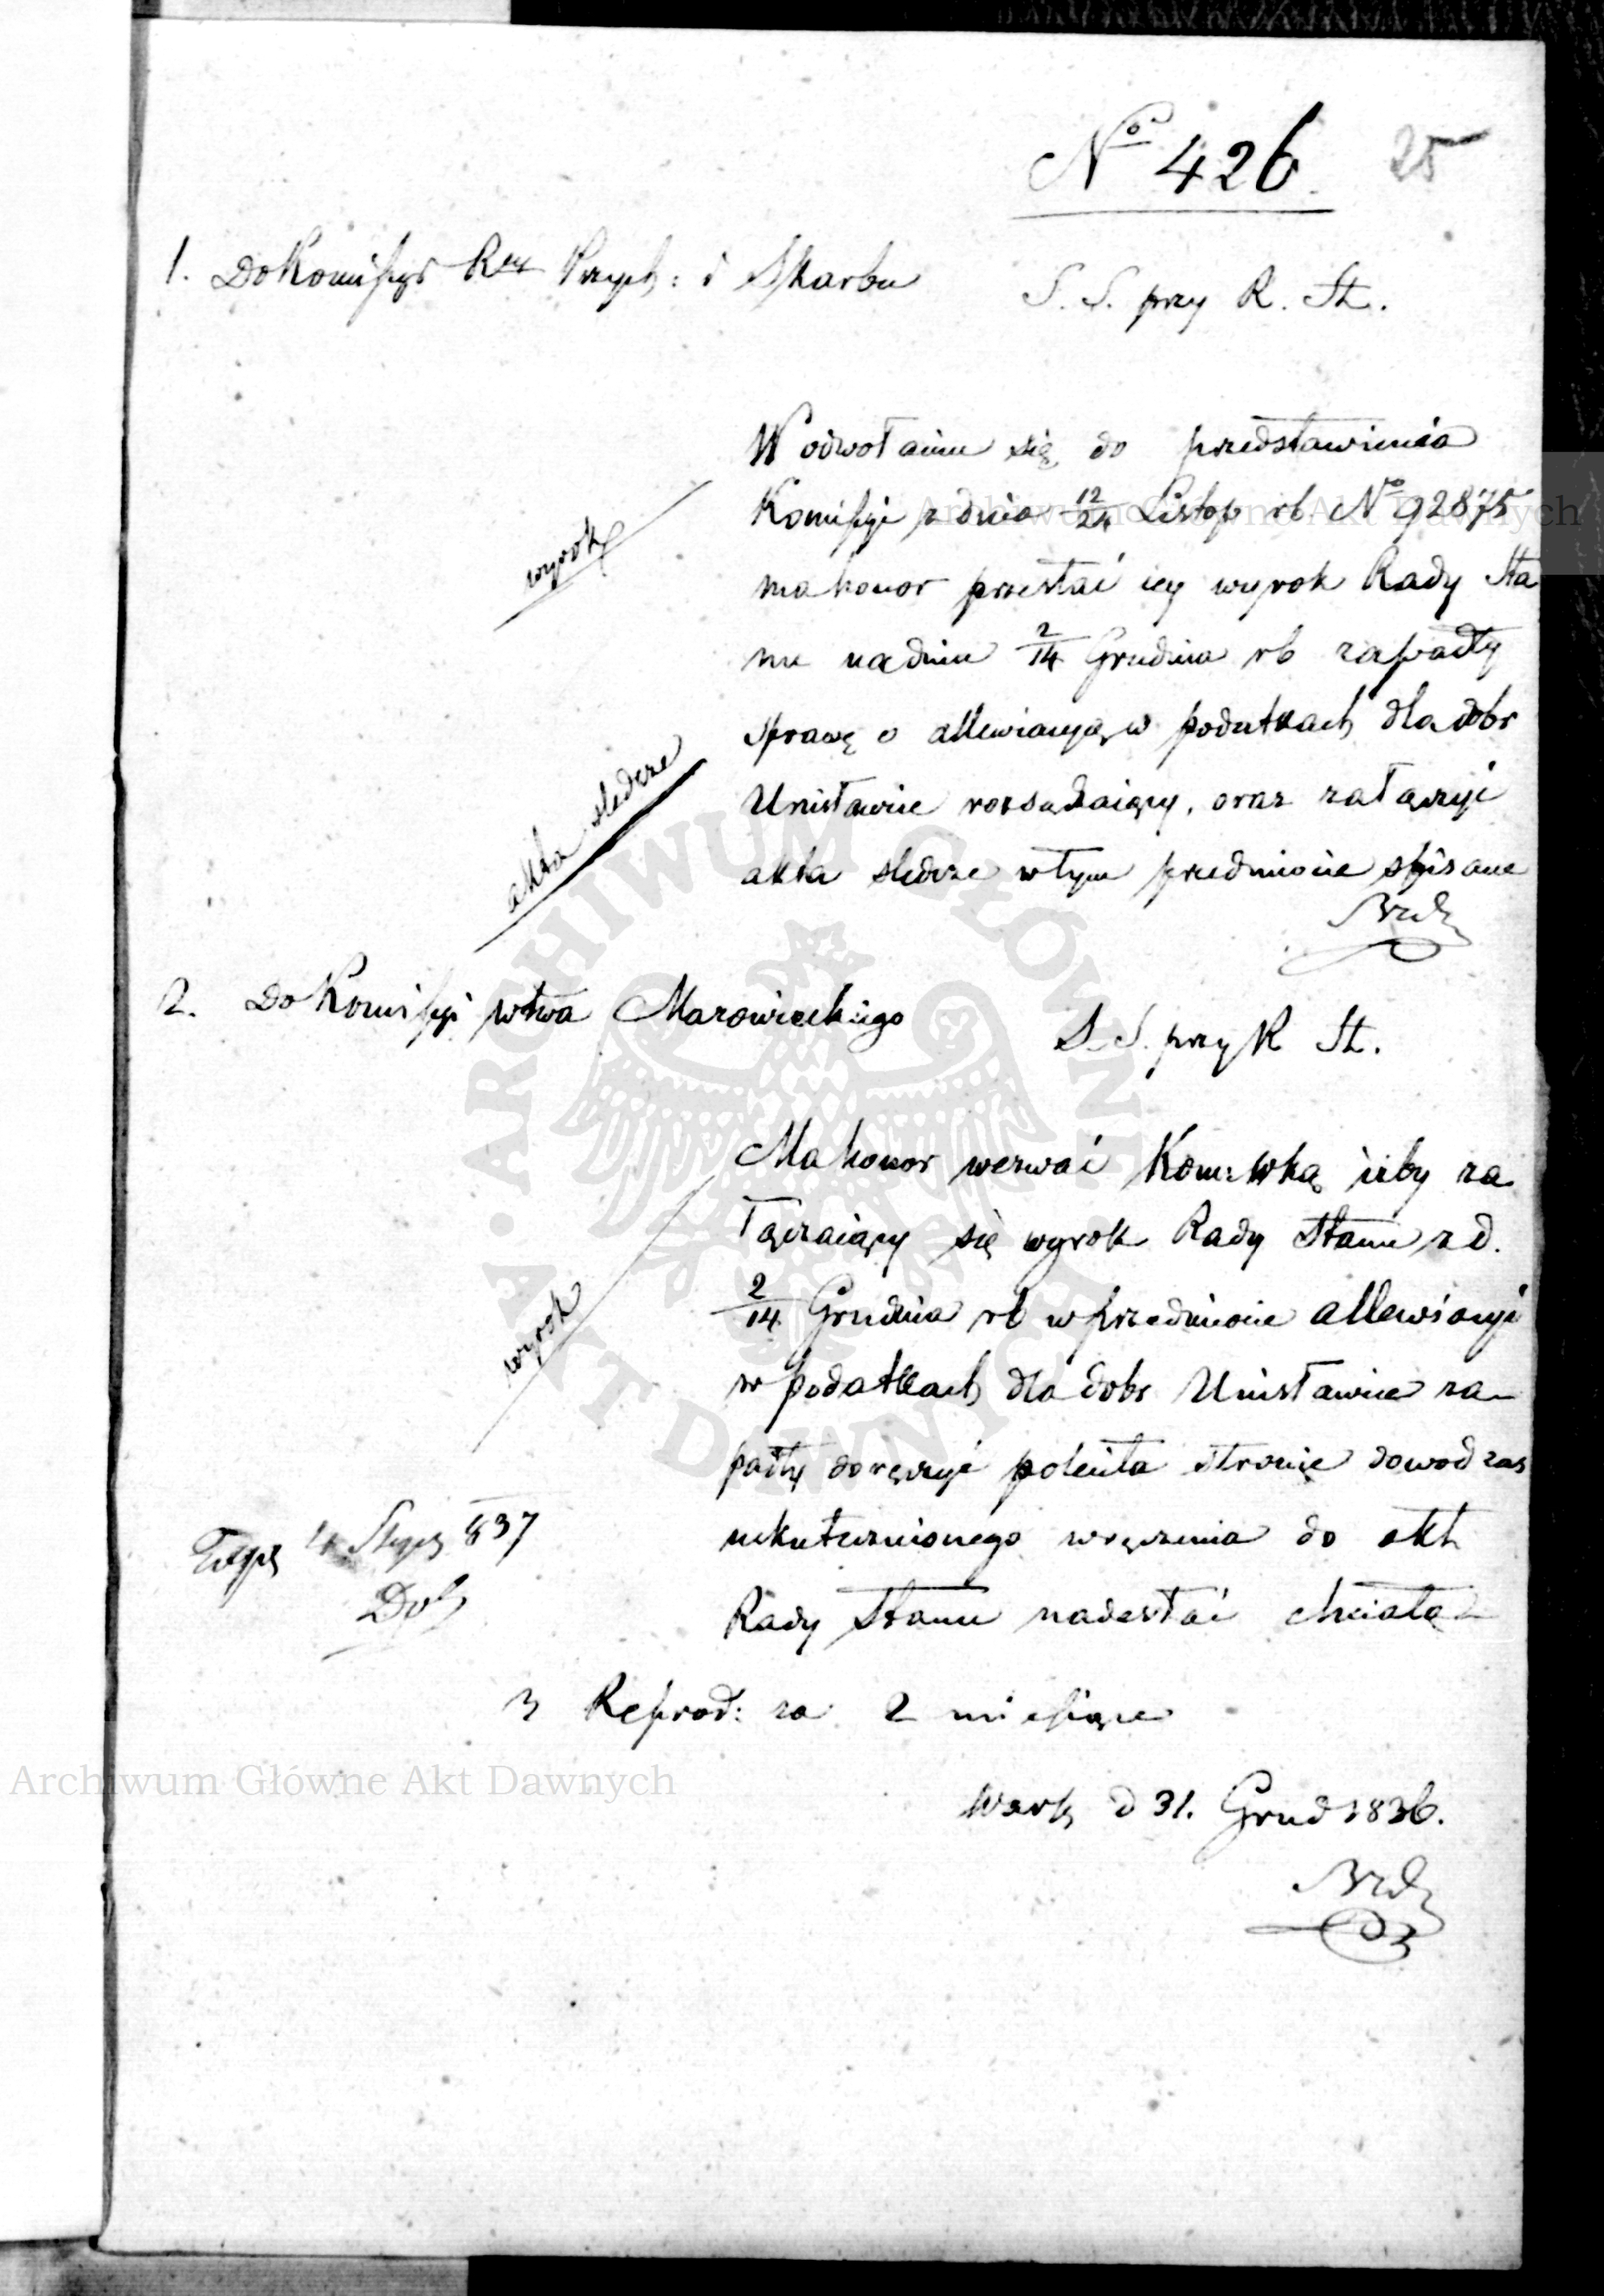 No 426.
25
1. Do Komissyi Rey Przych: i Skarbu
S. S. przy R. St.
W odwołaniu się do przedstawienia
Komissyi z dnia 12/24 Listop rb No 92875
ma honor przesłać iey wyrok Rady Sta
nu na dniu 2/14 Grudnia rb zapadły
wyrok
sprawę o allewiacyą w podatkach dla dobr
Unisławice rozsądzaiący, oraz załączyć
akta śledcze w tym przedmiocie spisane
akta śledcze
2. Do Komissyi wtwa Mazowieckiego
S. S. przy R St.
Ma honor wezwać Kom: Wką iżby za
łączaiący się wyrok Rady Stanu z d.
2/14 Grudnia rb w przedmiocie allewiacyi
wyrok
w podatkach dla dobr Unisławice za
padły doręczyć poleciła stronie dowod zas
uskutecznionego wręczenia do akt
Rady Stanu nadesłać chciała
4 Stycz 837
3 Reprod: za 2 miesiące
Warsz d 31. Grud 1836.
Archiwum Główne Akt Dawnych
Archiwum Główne Akt Dawnych
ARCHIWUM GŁÓWNE AKT DAWNYCH